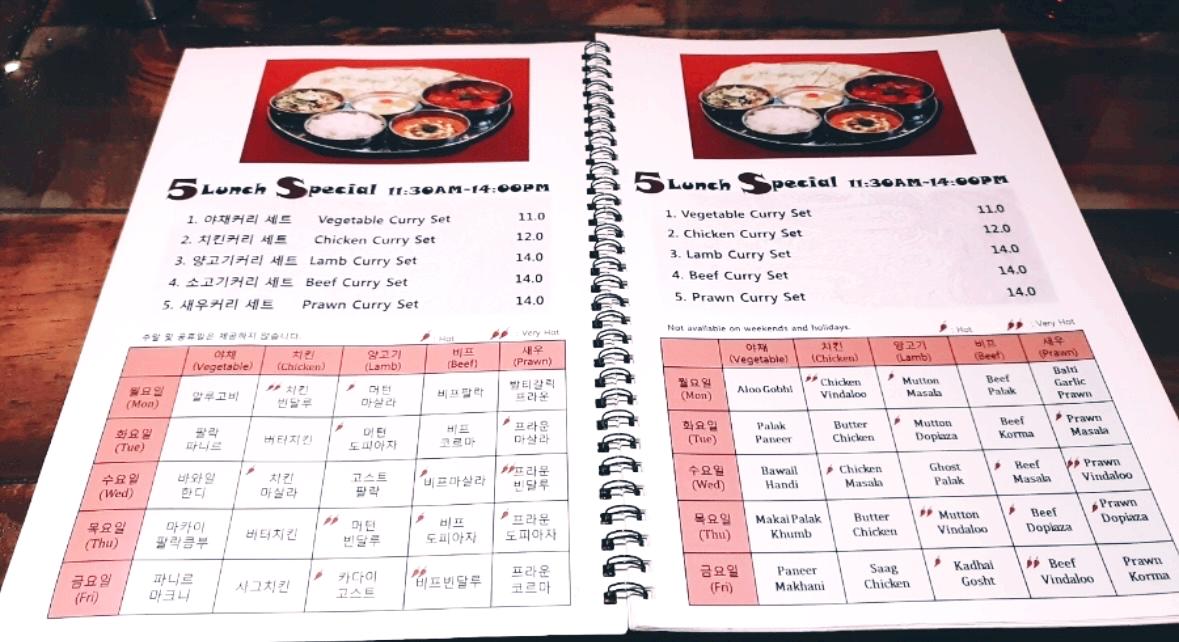 5 Lunch Special 11:30AM-14:00PM
1. 야채커리 세트 Vegetable Curry Set 11.0
2. 치킨커리 세트 Chicken Curry Set 12.0
3. 양고기커리 세트 Lamb Curry Set 14.0
4. 소고기커리 세트 Beef Curry Set 14.0
5. 새우커리 세트 Prawn Curry Set 14.0
주말 및 공휴일은 제공하지 않습니다. : Hot : Very Hot
야채 치킨 양고기 비프 새우
(Vegetable) (Chicken) (Lamb) (Beef) (Prawn)
월요일 알루고비 치킨 머턴 비프팔락 발티갈릭
(Mon) 빈달루 마살라 프라운
화요일 팔락 버터치킨 머턴 비프 프라운
(Tue) 파니르 도피아자 코르마 마살라
수요일 바와일 치킨 고스트 비프마살라 프라운
(Wed) 한디 마살라 팔락 빈달루
목요일 마카이 버터치킨 머턴 비프 프라운
(Thu) 팔락쿰부 빈달루 도피아자 도피아자
금요일 파니르 사그치킨 카다이 비프빈달루 프라운
(Fri) 마크니 고스트 코르마
5 Lunch Special 11:30AM-14:00PM
1. Vegetable Curry Set 11.0
2. Chicken Curry Set 12.0
3. Lamb Curry Set 14.0
4. Beef Curry Set 14.0
5. Prawn Curry Set 14.0
Not available on weekends and holidays. : Hot : Very Hot
야채 치킨 양고기 비프 새우
(Vegetable) (Chicken) (Lamb) (Beef) (Prawn)
월요일 Aloo Gobhi Chicken Mutton Beef Balti
(Mon) Vindaloo Masala Palak Garlic
Prawn
화요일 Palak Butter Mutton Beef Prawn
(Tue) Paneer Chicken Dopiaza Korma Masala
수요일 Bawail Chicken Ghost Beef Prawn
(Wed) Handi Masala Palak Masala Vindaloo
목요일 Makai Palak Butter Mutton Beef Prawn
(Thu) Khumb Chicken Vindaloo Dopiaza Dopiaza
금요일 Paneer Saag Kadhai Beef Prawn
(Fri) Makhani Chicken Gosht Vindaloo Korma